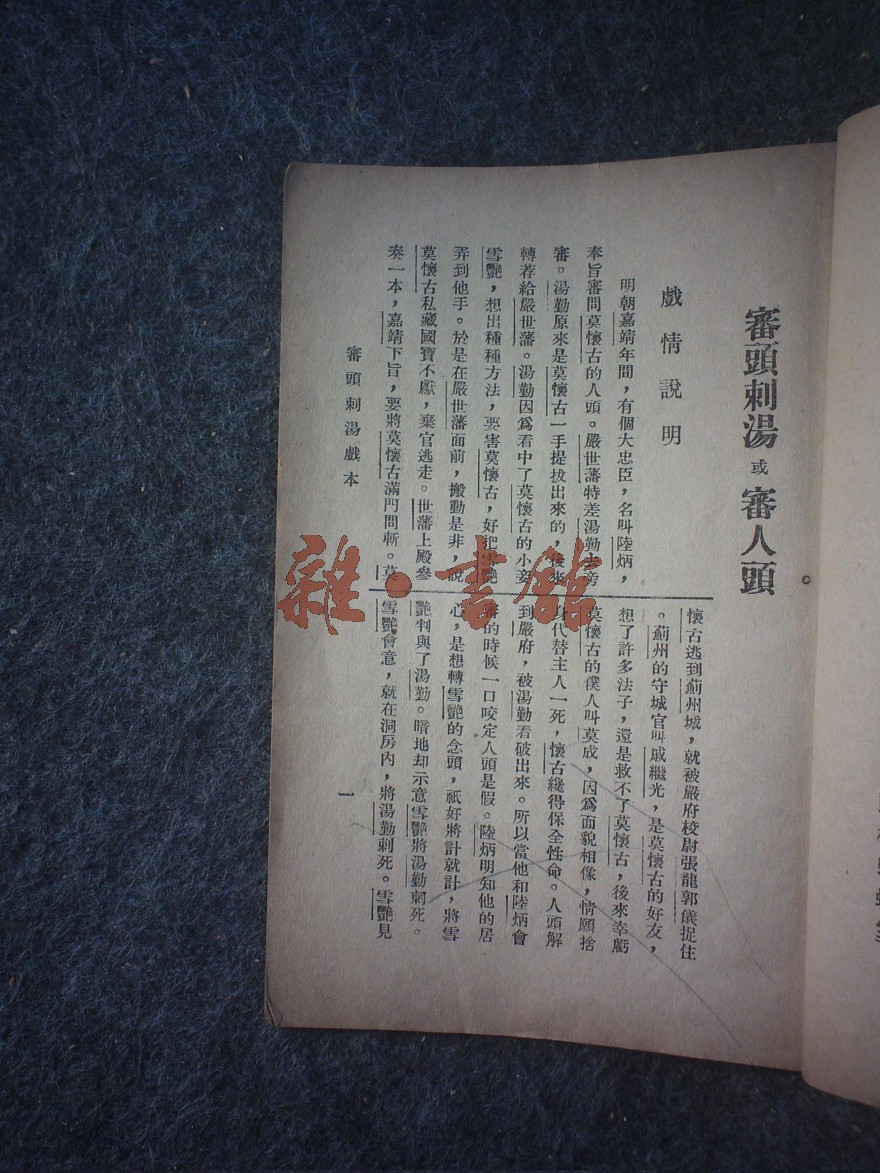 審頭刺湯 或 審人頭
戲情說明
明朝嘉靖年間，有個大忠臣，名叫陸炳，
奉旨審問莫懷古的人頭。嚴世藩特差湯勤去旁
審。湯勤原來是莫懷古一手提拔出來的，後來
轉荐給嚴世藩。湯勤因爲看中了莫懷古的小妾
雪艷，想出種種方法，要害莫懷古，好把雪艷
弄到他手。於是在嚴世藩面前，搬動是非，說
莫懷古私藏國寶不獻，棄官逃走。世藩上殿參
奏一本，嘉靖下旨，要將莫懷古滿門問斬。莫
懷古逃到薊州城，就被嚴府校尉張龍郭儀捉住
。薊州的守城官叫戚繼光，是莫懷古的好友，
想了許多法子，還是救不了莫懷古，後來幸虧
莫懷古的僕人叫莫成，因爲面貌相像，情願捨
身代替主人一死，懷古纔得保全性命。人頭解
到嚴府，被湯勤看破出來。所以當他和陸炳會
審的時候一口咬定人頭是假。陸炳明知他的居
心，是想轉雪艷的念頭，祇好將計就計，將雪
艷判與了湯勤。暗地却示意雪艷將湯勤刺死。
雪艷會意，就在洞房內，將湯勤刺死。雪艷見
審頭刺湯戲本
一
雜·書館